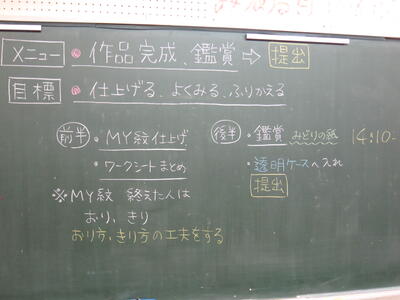 メニュー ・作品完成、鑑賞 ⇨ 提出
目標 ・仕上げる、よくみる、ふりかえる
前半 ・MY紋仕上げ
・ワークシートまとめ
※MY紋 終えた人は
おり、きり
おり方、きり方の工夫をする
後半 ・鑑賞 みどりの紙 14:10-
・透明ケースへ入れ
提出